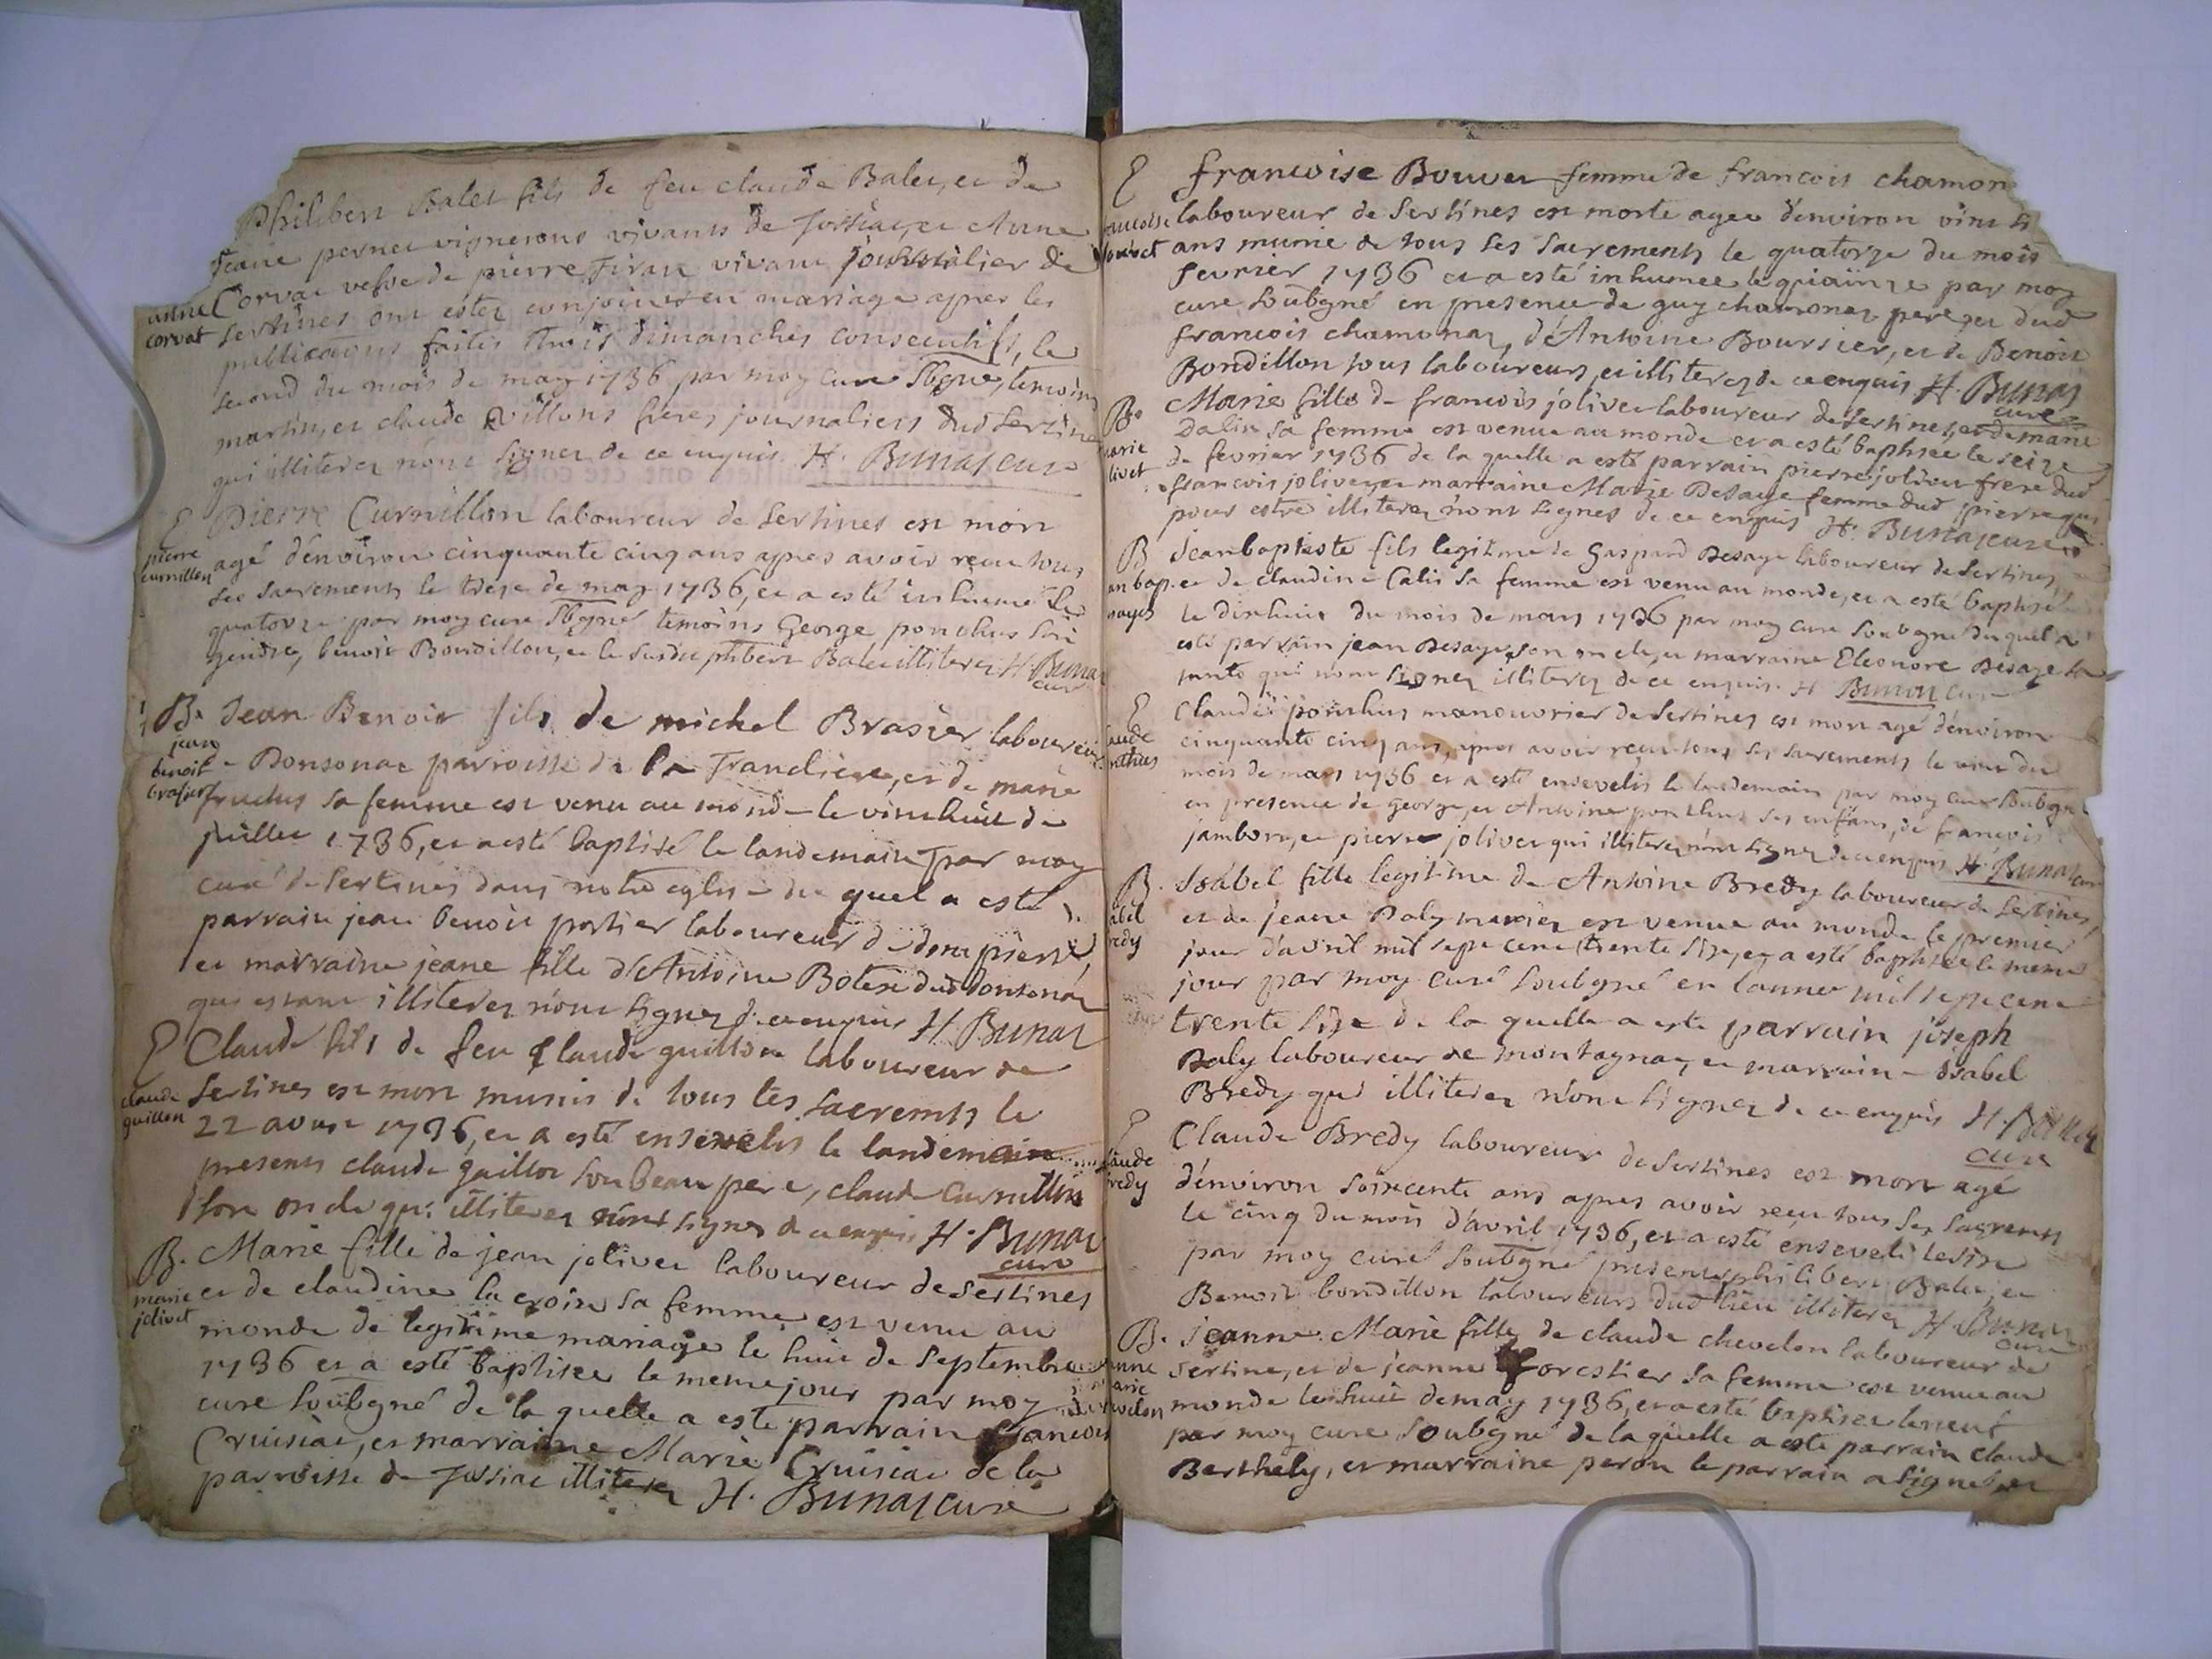 Philibert Balet fils de feu claude Balet, et de
Jeane pernet vignerons vivants de Jossiat, et Anne
anne
corvat
Corvat vefve de pierre Tiran vivant journalier de
Sertines ont estez conjoints en mariage apres les
publications faites trois dimanches consecutifs, le
second du mois de may 1736 par moy cure sbgne, temoins
martin, et claude villons freres journaliers dud Sertine
qui illiterez n'ont signez de ce enquis H. Bunaz cure
E
pierre
curnillon
Pierre Curnillon laboureur de Sertines est mort
agé d'environ cinquante cinq ans apres avoir recu tous
ses sacrements le treze de may 1736, et a esté inhumé le
quatorze par moy cure sbgné temoins George ponthus son
gendre, benoit Bondillon, et le susdit phibert Balet illiterez H. Bunaz
cure
B.
jean
benoit
brasier
Jean Benoit fils de michel Brasier laboureur
Donsonat parroisse de la Tranclière, et de marie
fruclus sa femme est venu au monde le vinthuit de
juillet 1736, et a esté baptisé le landemain par moy
curé de Sertines dans notre eglise du quel a esté
parrain jean benoit portier laboureur de dompierre,
et marraine jeane fille d'Antoine Botex dud Donsonat
qui estant illiterez n'ont signez de ce enquis H. Bunaz
E
claude
guillon
Claude fils de feu Claude guillon laboureur de
Sertines est mort munis de tous les sacrements le
22 aoust 1736, et a esté ensevelis le landemain
presents claude gaillot son beau pere, claude Curnillon
son oncle qui illiterez n'ont signez de ce enquis H. Bunaz
cure
B.
marie
jolivet
Marie fille de jean jolivet laboureur de Sertines
et de claudine la croix sa femme est venu au
monde de legitime mariage le huit de septembre
1736 et a esté baptisee le meme jour par moy
cure soubgné de la quelle a este parrain francois
Cruisiat, et marraine Marie Cruisiat de la
parroisse de Jossiat illiterez H. Bunaz cure
E
francoise
bouvet
francoise Bouvet femme de francois chamon
laboureur de Sertines est morte agee d'environ vint
ans munie de tous ses sacrements le quatorze du mois
fevrier 1736 et a esté inhumee le quinze par moy
cure soubgné en presence de guy chamonaz pere et dud
francois chamonaz, d'Antoine Boursier, et de Benoit
Bondillon tous laboureurs, et illiterez de ce enquis H. Bunaz
cure
B
marie
jolivet
Marie fille de francois jolivet laboureur de Sertines, et de marie
Dalin sa femme est venue au monde et a esté baptisee le seize
de fevrier 1736 de la quelle a esté parrain pierre jolivet frere dud
francois jolivet, et marraine Marie Desaye femme dud pierre qui
pour estre illiterez n'ont signes de ce enquis H. Bunaz cure
B
jean bap.
Jeanbaptiste fils legitime de Gaspard Desaye laboureur de Sertines,
et de claudine Calis sa femme est venu au monde, et a esté baptisé
le dixhuit du mois de mars 1736 par moy cure soubgné du quel a
esté parrain jean Desaye son oncle, et marraine Eleonore Desaye sa
tante qui n'ont signez illiterez de ce enquis H. Bunaz cure
E
claude
ponthus
Claude ponthus manouvrier de Sertines est mort agé d'environ
cinquante cinq ans, apres avoir recu tous ses sacrements le vint du
mois de mars 1736 et a esté ensevelis le landemain par moy cure soubgné
en presence de george, et Antoine ponthus ses enfans, de francois
jambon, et pierre jolivet qui illiterez n'ont signez de ce enquis H. Bunaz cure
B.
isabel
bredy
Isabel fille legitime de Antoine Bredy laboureur de Sertines,
et de jeane Daly mariez est venue au monde le premier
jour d'avril mil sept cent trente six, et a esté baptisee le meme
jour par moy curé soubgné en lannee mil sept cent
trente six de la quelle a esté parrain joseph
Daly laboureur de montagnat, et marraine Isabel
Bredy qui illiterez n'ont signez de ce enquis H. Bunaz
cure
E
claude
bredy
Claude Bredy laboureur de Sertines est mort agé
d'environ soixcente ans apres avoir recu tous ses sacrements
le cinq du mois d'avril 1736, et a esté enseveli le six
par moy curé soubgné presents philibert Balet, et
Benoit bondillon laboureurs dud lieu illiterez H. Bunaz
cure
B.
jeanne
marie
chevelon
Jeanne Marie fille de claude chevelon laboureur de
Sertine, et de jeanne forestier sa femme est venue au
monde le huit de may 1736, et a esté baptisee le neuf
par moy cure soubgné de la quelle a esté parrain claude
Berthely, et marraine peron le parrain a signé, et